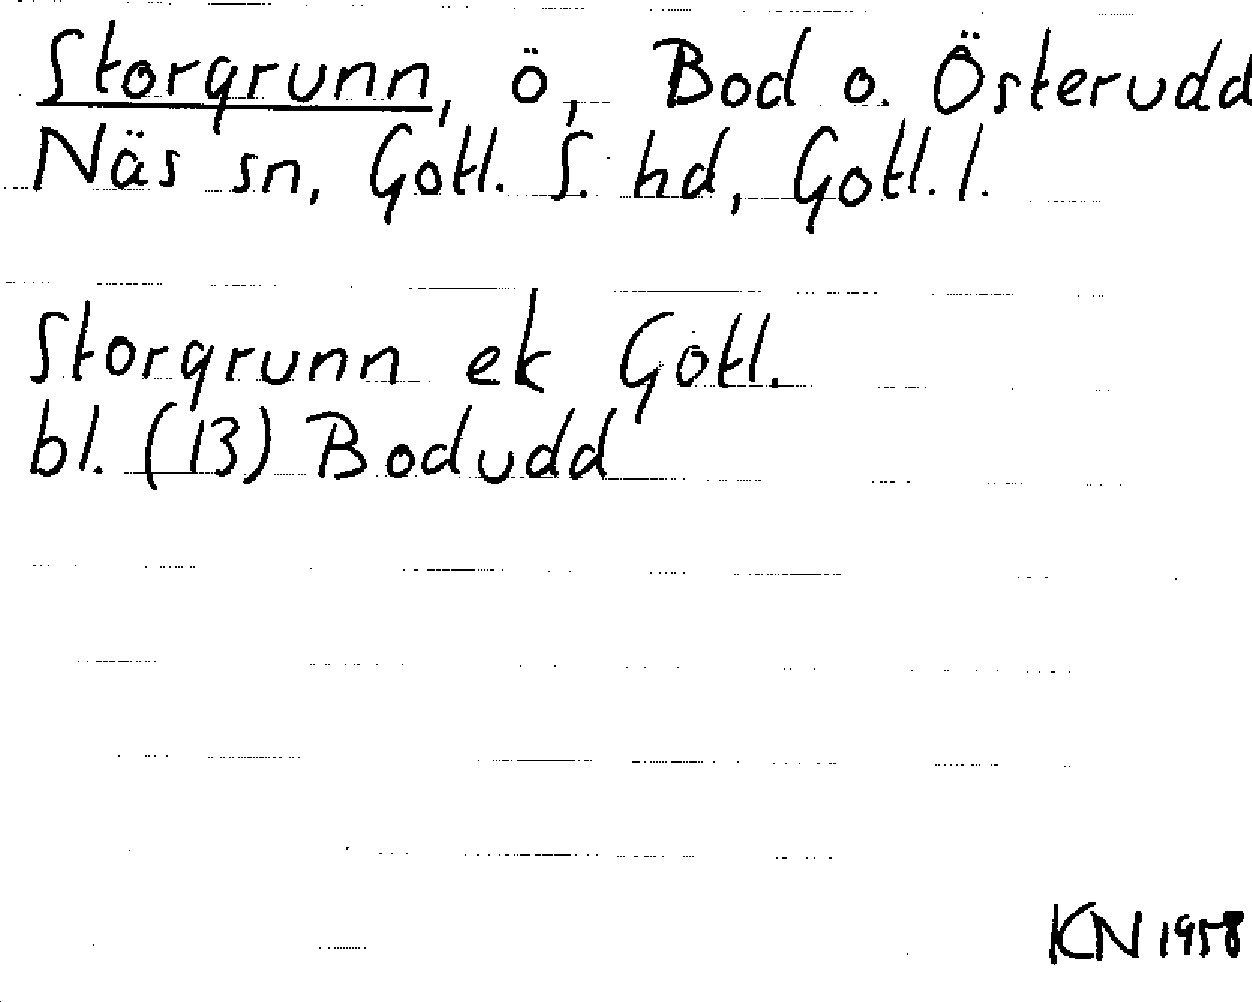 Storgrunn, ö, Bod o. Österudd
Näs sn, Gotl. S. hd, Gotl. l.
Storgrunn ek Gotl.
bl. (13) Bodudd
KN 1958